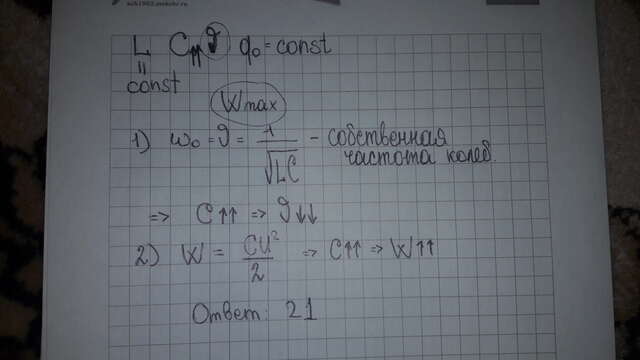 L C↑↑ ϑ q₀ = const
"
const
Wmax
1) ω₀ = ϑ = 1/√LC - собственная
частота колеб.
=> C↑↑ => ϑ↓↓
2) W = CU²/2 => C↑↑ => W↑↑
Ответ: 21